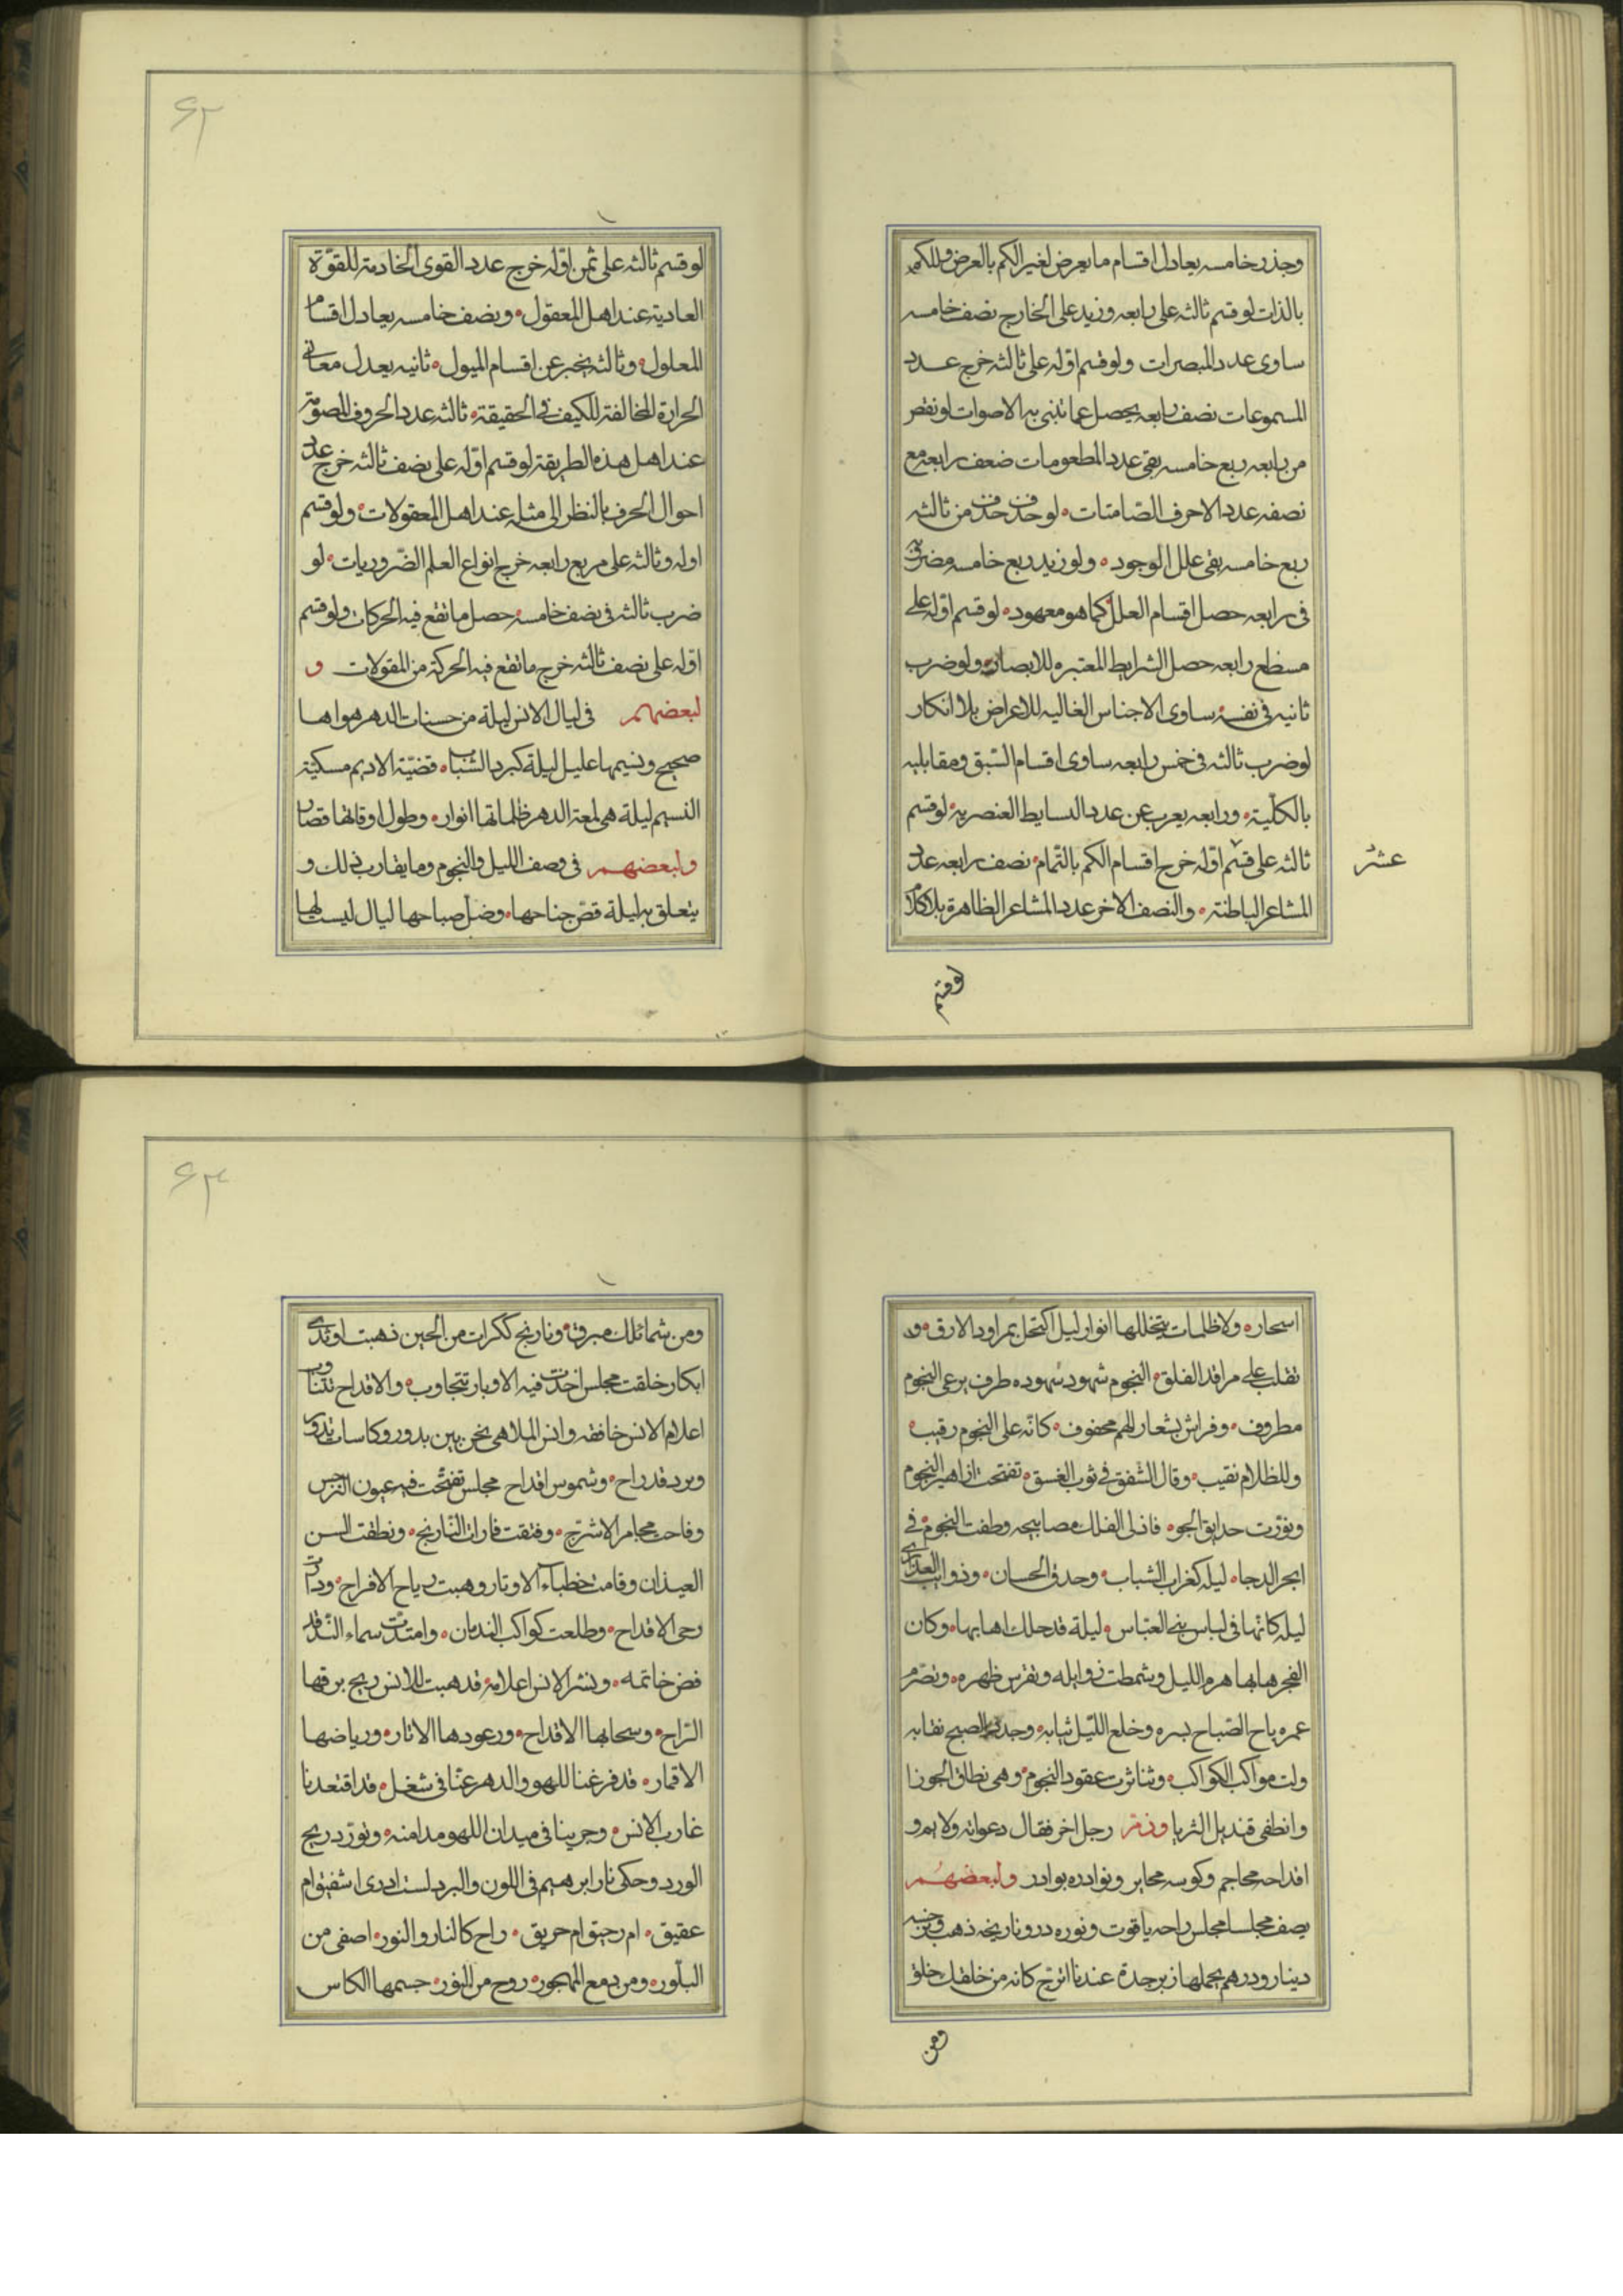 وجذر خامسه يعادل اقسام ما يعرض لغير الكم بالعرض وللكم
بالذات لو قسم ثالثه على رابعه وزيد على الخارج نصف خامسه
ساوى عدد المبصرات ولو قسم اوله على ثالثه خرج عدد
المسموعات نصف رابعه يحصل عما تنبى به الاصوات لو نقص
من رابعه ربع خامسه بقى عدد المطعومات ضعف رابعه مع
نصفه عدد الاحرف الصامتات لو حذف من ثالثه
ربع خامسه بقى علل الوجود ولو زيد ربع خامسه مضروبة
فى رابعه حصل اقسام العلل كما هو معهود لو قسم اوله على
مسطح رابعه حصل الشرايط المعتبره للابصار ولو ضرب
ثانيه فى نفسه ساوى الاجناس العاليه للاعراض بلا انكار
لو ضرب ثالثه فى خمس رابعه ساوى اقسام السّبق ومقابليه
بالكلّية ورابعه يعرب عن عدد البسايط العنصريه لو قسم
ثالثه على قسم اوله خرج اقسام الكم بالتّمام نصف رابعه عدد
عشر
المشاعر الباطنة والنصف الاخر عدد المشاعر الظاهرة بلا كلام
لو قسم
٦٢
لو قسم ثالثه على ثمن اوّله خرج عدد القوى الخادمة للقوّة
العادية عند اهل المعقول ونصف خامسه يعادل اقسام
المعلول وثالثه يخبر عن اقسام الميول ثانيه يعدل معانى
الحرارة المخالفة للكيف فى الحقيقة ثالثه عدد الحروف المصوتة
عند اهل هذه الطريقة لو قسم اوّله على نصف ثالثه خرج عدد
احوال الحرف بالنظر الى مثله عند اهل المعقولات ولو قسم
اوله وثالثه على مربع رابعه خرج انواع العلم الضّروريات لو
ضرب ثالثه فى نصف خامسه حصل ما تقع فيه الحركات ولو قسم
اوّله على نصف ثالثه خرج ما تقع فيه الحركة من المقولات و
لبعضهم فى ليال الانس ليلة من حسنات الدهر هواها
صحيح ونسيمها عليل ليلة كبرد الشباب فضيّة الاديم مسكيّة
النسيم ليلة هى لمعة الدهر ظلماتها انوار وطول اوقاتها قصار
ولبعضهم فى وصف الليل والنجوم وما يقارب ذلك و
يتعلق به ليلة قصّ جناحها وضلّ صباحها ليال ليست لها
اسحاره ولا ظلمات يتخللها انوار ليل اكتحل بمراود الارق و
تقلب على مراقد القلق النجوم شهود شهوده طرف يرعى النجوم
مطروف وفراش بشعار الهم محفوف كانّه على النجوم رقيب
وللظلام نقيب وقال الشفق فى ثوب الغسق تفتحت ازاهير النجوم
ونوّرت حدايق الجو فاذلى الفلك مصابيحه وطفت النجوم فى
ابحر الدجا ليله كغراب الشباب وحدق الحسان وذوائب العذارى
ليله كانّها فى لباس بنى العباس ليلة قد حلك اهابها وكان
الفجر هابها هرم الليل وشمطت ذوابله وتقوس ظهره وتصّرم
عمره باح الصّباح بسره وخلع اللّيل ثيابه وحدر الصبح نقابه
ولت مواكب الكواكب وتناثرت عقود النجوم وهى نطاق الجوزا
وانطفى قنديل الثريا وذمّ رجل اخر فقال دعواته ولايم و
اقداحه محاجم وكوسه محابر ونوادره بوادر ولبعضهم
يصف مجلسا مجلس راحه ياقوت ونوره درو نارنجه ذهب ونرجسه
دينار ودرهم يحملها زبرجدة عندنا اترج كانه من خلقك خلق
ومن
٦٣
ومن شمائلك سرق ونارنج ككرات من الجين ذهبت او ثدى
ابكار خلقت مجلس اخذت فيه الاوبار تتجاوب والاقداح تتناوب
اعلام الانس خافقه والسن الملاهى نحن بين بدور وكاسات تدور
وبرد قدراح وشموس اقداح مجلس تفتّحت فيه عيون النرجس
وفاحت مجامر الاترج وفتقت فارات النّارنج ونطقت السن
العيدان وقامت خطباء الاوتار وهبت رياح الافراح ودارت
رحى الاقداح وطلعت كواكب الندمان وامتدّت سماء النّدّ قد
فض خاتمه ونشر الانس اعلامه قد هبت للانس ريح برقها
الرّاح وسحابها الاقداح ورعودها الاتار ورياضها
الاقمار قد فرغنا للهو والدهر عنّا فى شغل قد اقتعدنا
غارب الانس وجرينا فى ميدان اللهو مدامنه وتورّد ريح
الورد وحكى نار ابرهيم فى اللون والبرد لست ادرى اشقيق ام
عقيق ام رحيق ام حريق راح كالنار والنور اصفى من
البلّور ومن دمع المهجور روح من النور جسمها الكاس